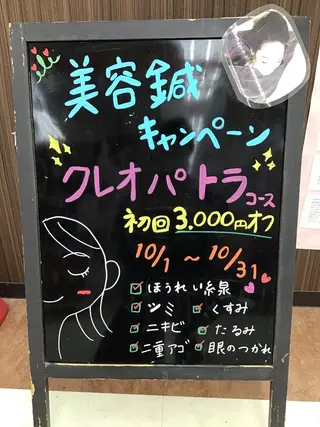 美容鍼
キャンペーン
クレオパトラコース
初回3,000円オフ
10/1 ~ 10/31
ほうれい線
シミ くすみ
ニキビ たるみ
二重アゴ 眼のつかれ